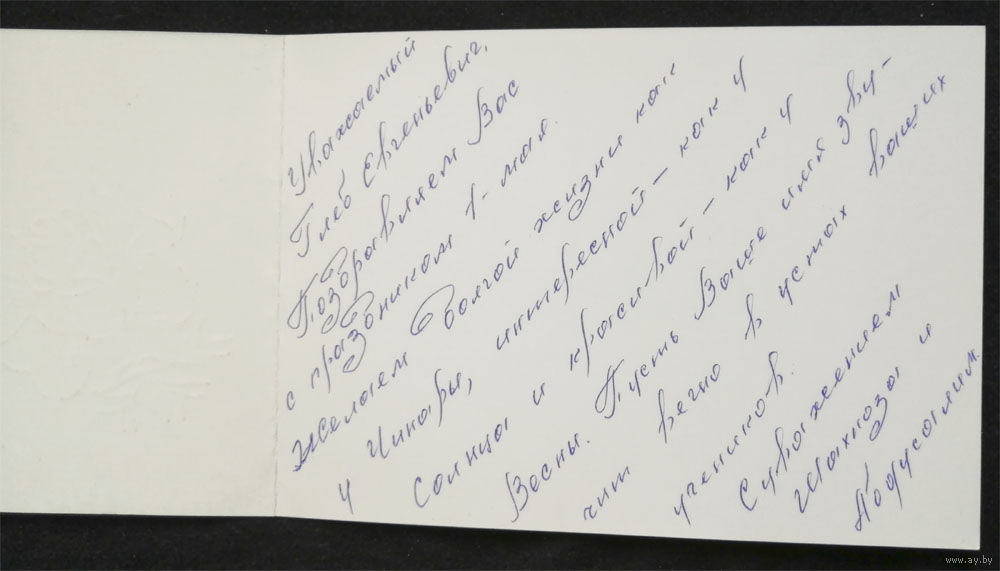 Уважаемый
Глеб Евгеньевич,
Поздравляем Вас
с праздником 1-мая.
желаем долгой жизни как
у Чинары, интересной - как у
Солнца и красивой - как у
Весны. Пусть Ваше имя зву-
чит вечно в устах ваших
учеников.
С уважением
Шахноза и
Абдусалим.
www.ay.by